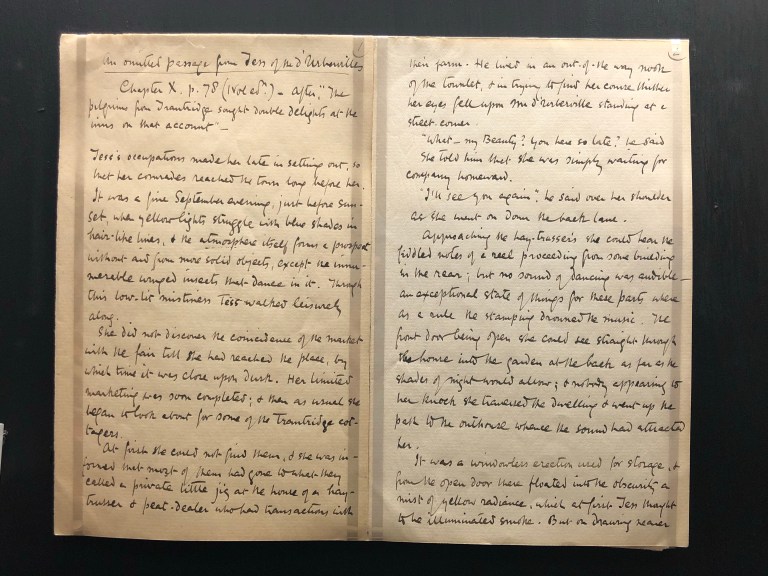 An omitted passage from Tess of the d'Urbervilles
Chapter X. p. 78 (1 vol edn.) — After, "The
pilgrims from Trantridge sought double delights at the
inns on that account" —
Tess's occupations made her late in setting out, so
that her comrades reached the town long before her.
It was a fine September evening, just before sun-
set, when yellow lights struggle with blue shades in
hair-like lines, & the atmosphere itself forms a prospect
without aid from more solid objects, except the innu-
merable winged insects that dance in it. Through
this low-lit mistiness Tess walked leisurely
along.
She did not discover the coincidence of the market
with the fair till she had reached the place, by
which time it was close upon dusk. Her limited
marketing was soon completed; & then as usual she
began to look about for some of the Trantridge cot-
tagers.
At first she could not find them, & she was in-
formed that most of them had gone to what they
called a private little jig at the house of a hay-
trusser & peat-dealer who had transactions with
2
their farm. He lived in an out-of-the way nook
of the townlet, & in trying to find her course thither
her eyes fell upon Mr d'Urberville standing at a
street corner.
"What – my Beauty? You here so late?" he said
She told him that she was simply waiting for
company homeward.
"I'll see you again", he said over her shoulder
as she went on down the back lane.
Approaching the hay-trusser's she could hear the
fiddled notes of a reel proceeding from some building
in the rear; but no sound of dancing was audible —
an exceptional state of things for these parts, where
as a rule the stamping drowned the music. The
front door being open she could see straight through
the house into the garden at the back as far as the
shades of night would allow; & nobody appearing to
her knock she traversed the dwelling & went up the
path to the outhouse whence the sound had attracted
her.
It was a windowless erection used for storage, &
from the open door there floated into the obscurity a
mist of yellow radiance, which at first Tess thought
to be illuminated smoke. But on drawing nearer